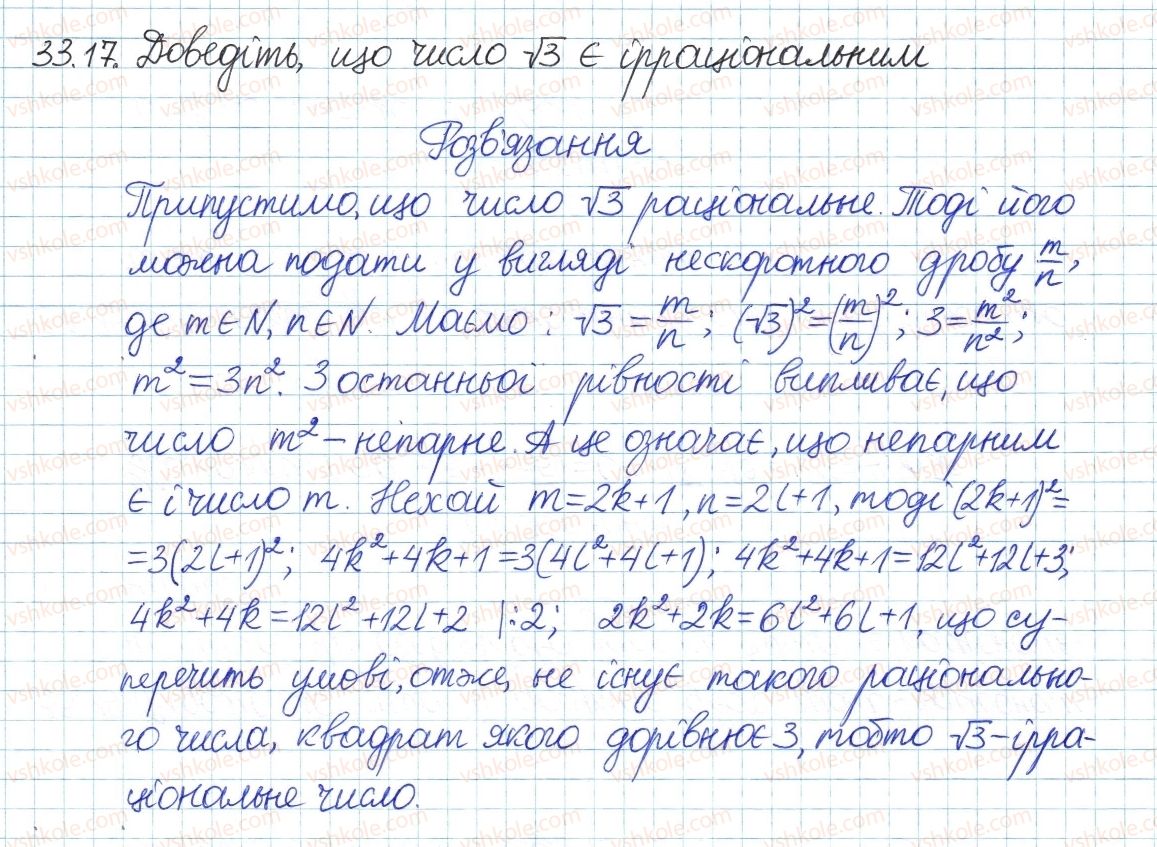 33.17. Доведіть, що число √3 є ірраціональним
Розв'язання
Припустимо, що число √3 раціональне. Тоді його
можна подати у вигляді нескоротного дробу m/n,
де m∈N, n∈N. Маємо: √3 = m/n; (√3)² = (m/n)²; 3 = m²/n²;
m² = 3n². З останньої рівності випливає, що
число m² – непарне. А це означає, що непарним
є і число m. Нехай m = 2k+1, n = 2l+1, тоді (2k+1)² =
= 3(2l+1)²; 4k²+4k+1 = 3(4l²+4l+1); 4k²+4k+1 = 12l²+12l+3;
4k²+4k = 12l²+12l+2 |:2; 2k²+2k = 6l²+6l+1, що су-
перечить умові, отже, не існує такого раціонально-
го числа, квадрат якого дорівнює 3, тобто √3 – ірра-
ціональне число.